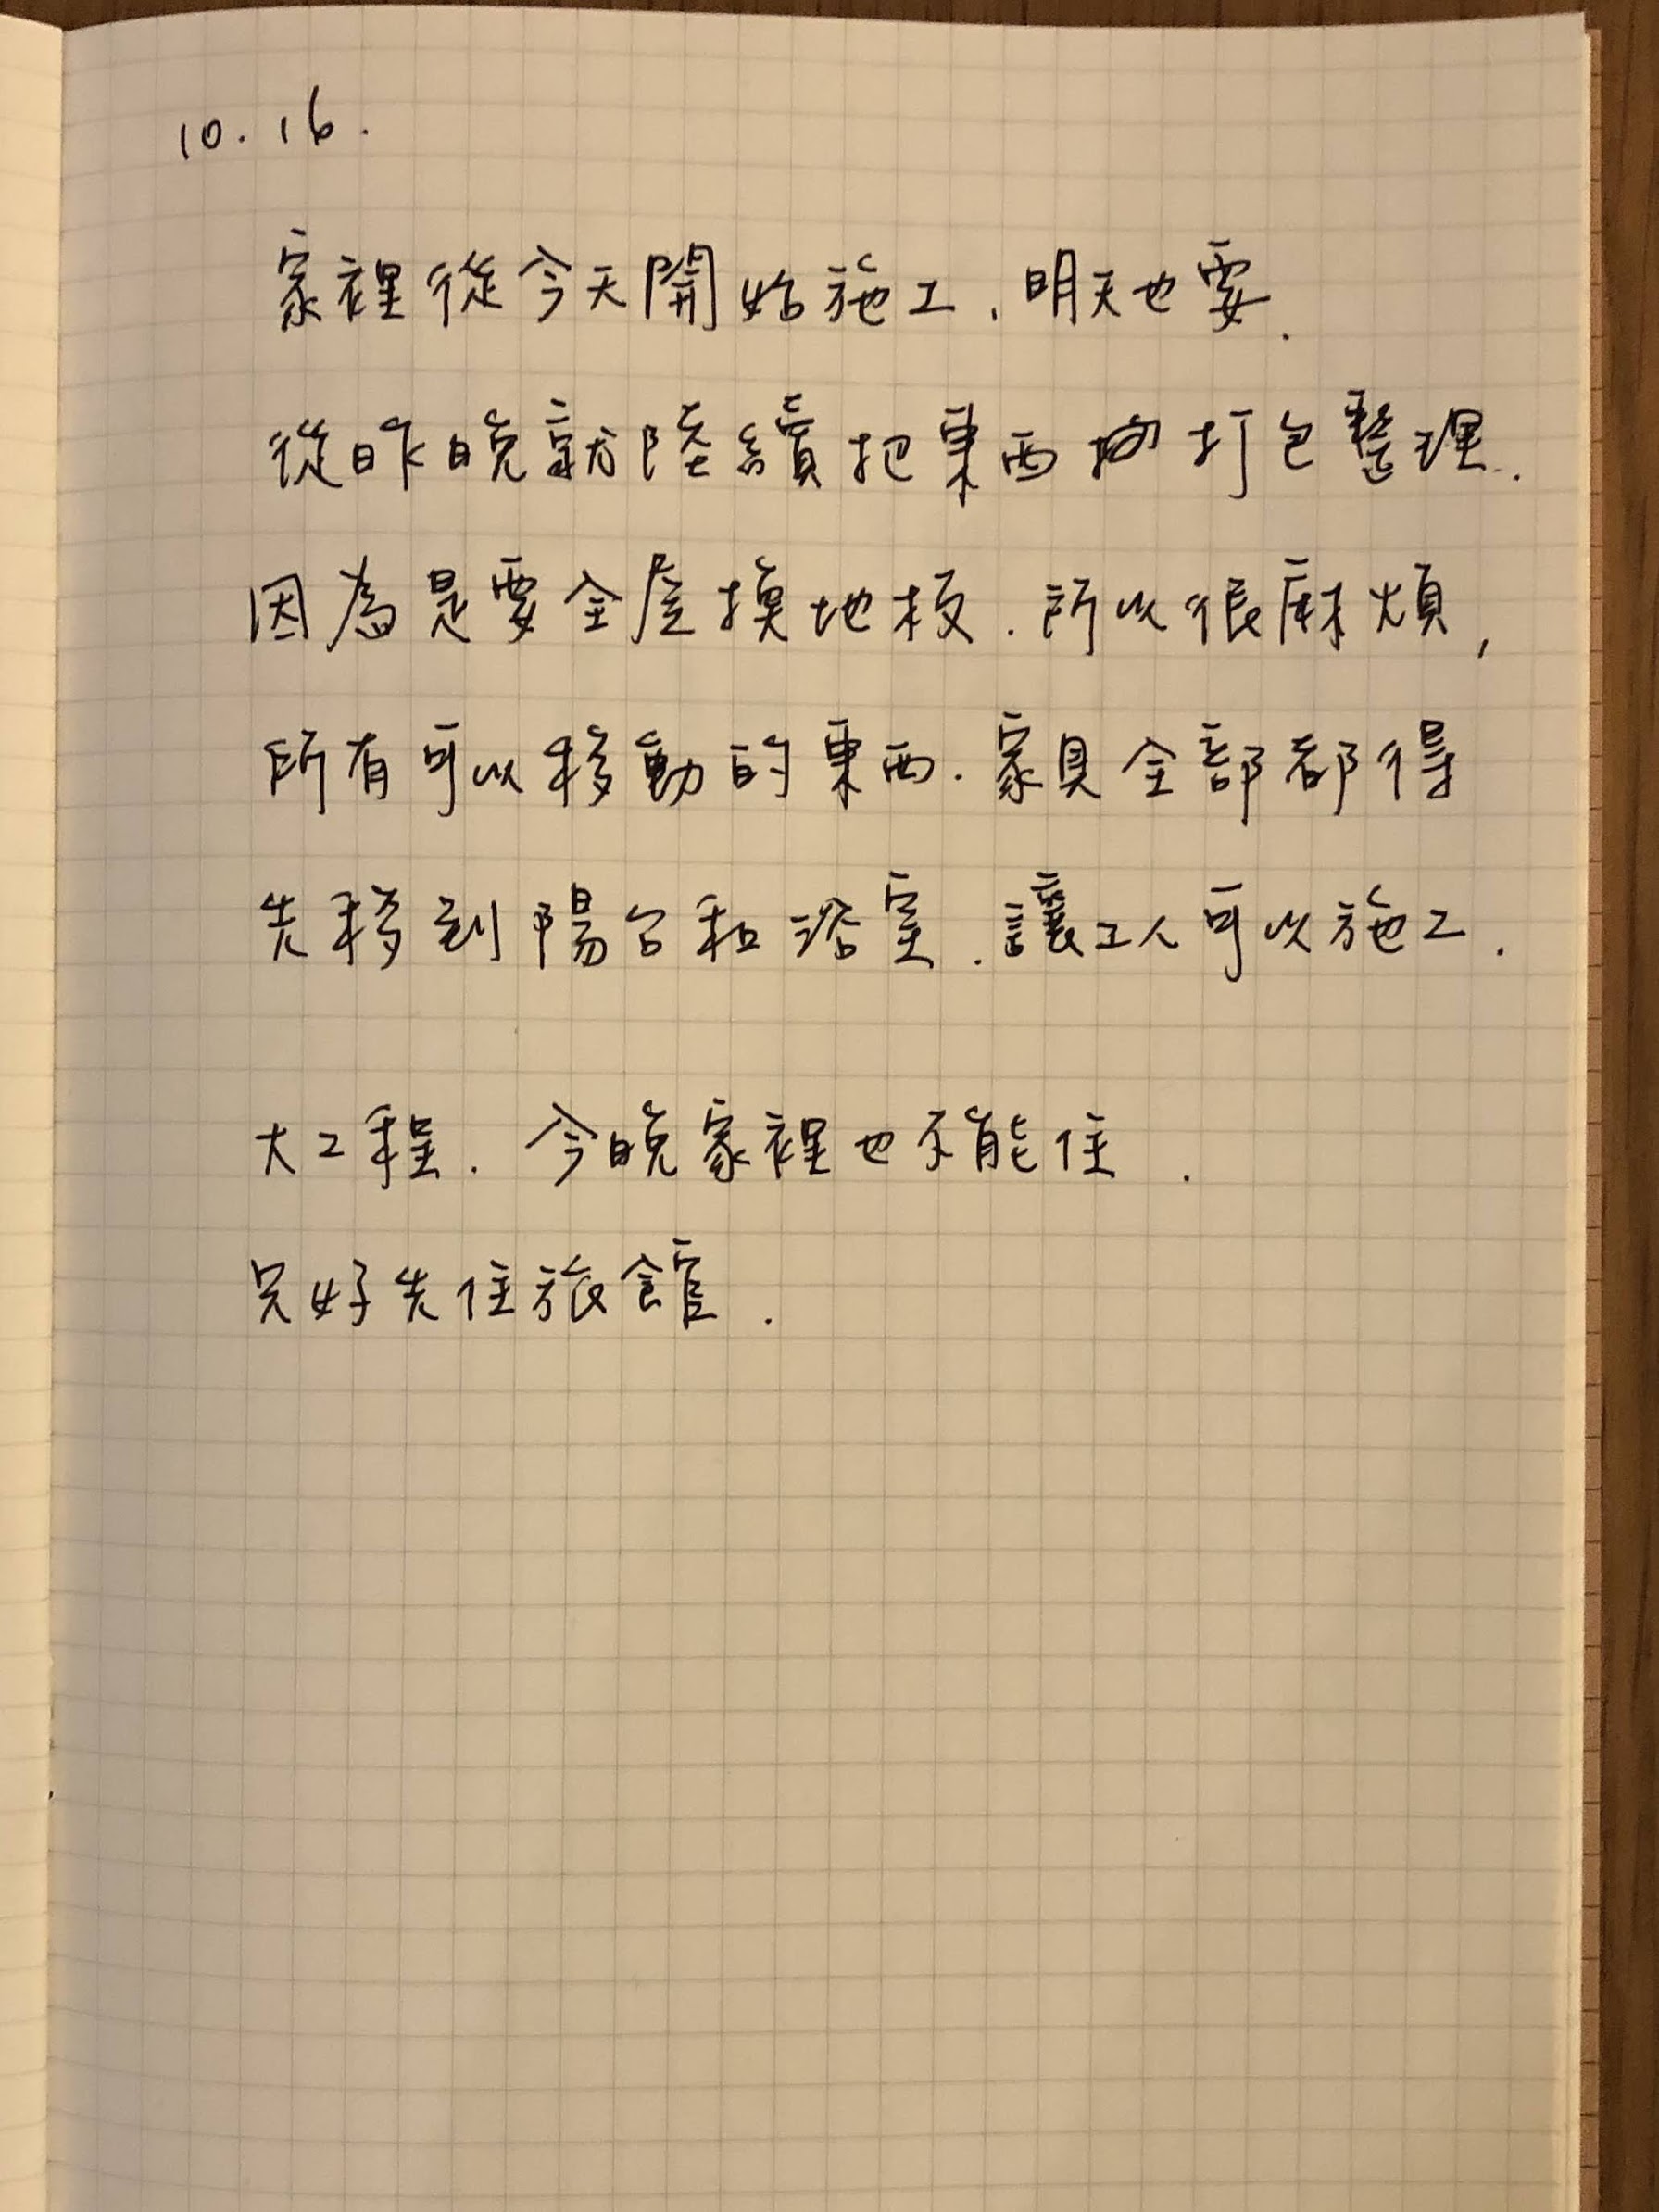 10.16.
家裡從今天開始施工,明天也要.
從昨晚就陸續把東西打包整理.
因為是要全屋換地板.所以很麻煩,
所有可以移動的東西.家具全部都得
先移到陽台和浴室.讓工人可以施工.
大工程.今晚家裡也不能住.
只好先住旅館.